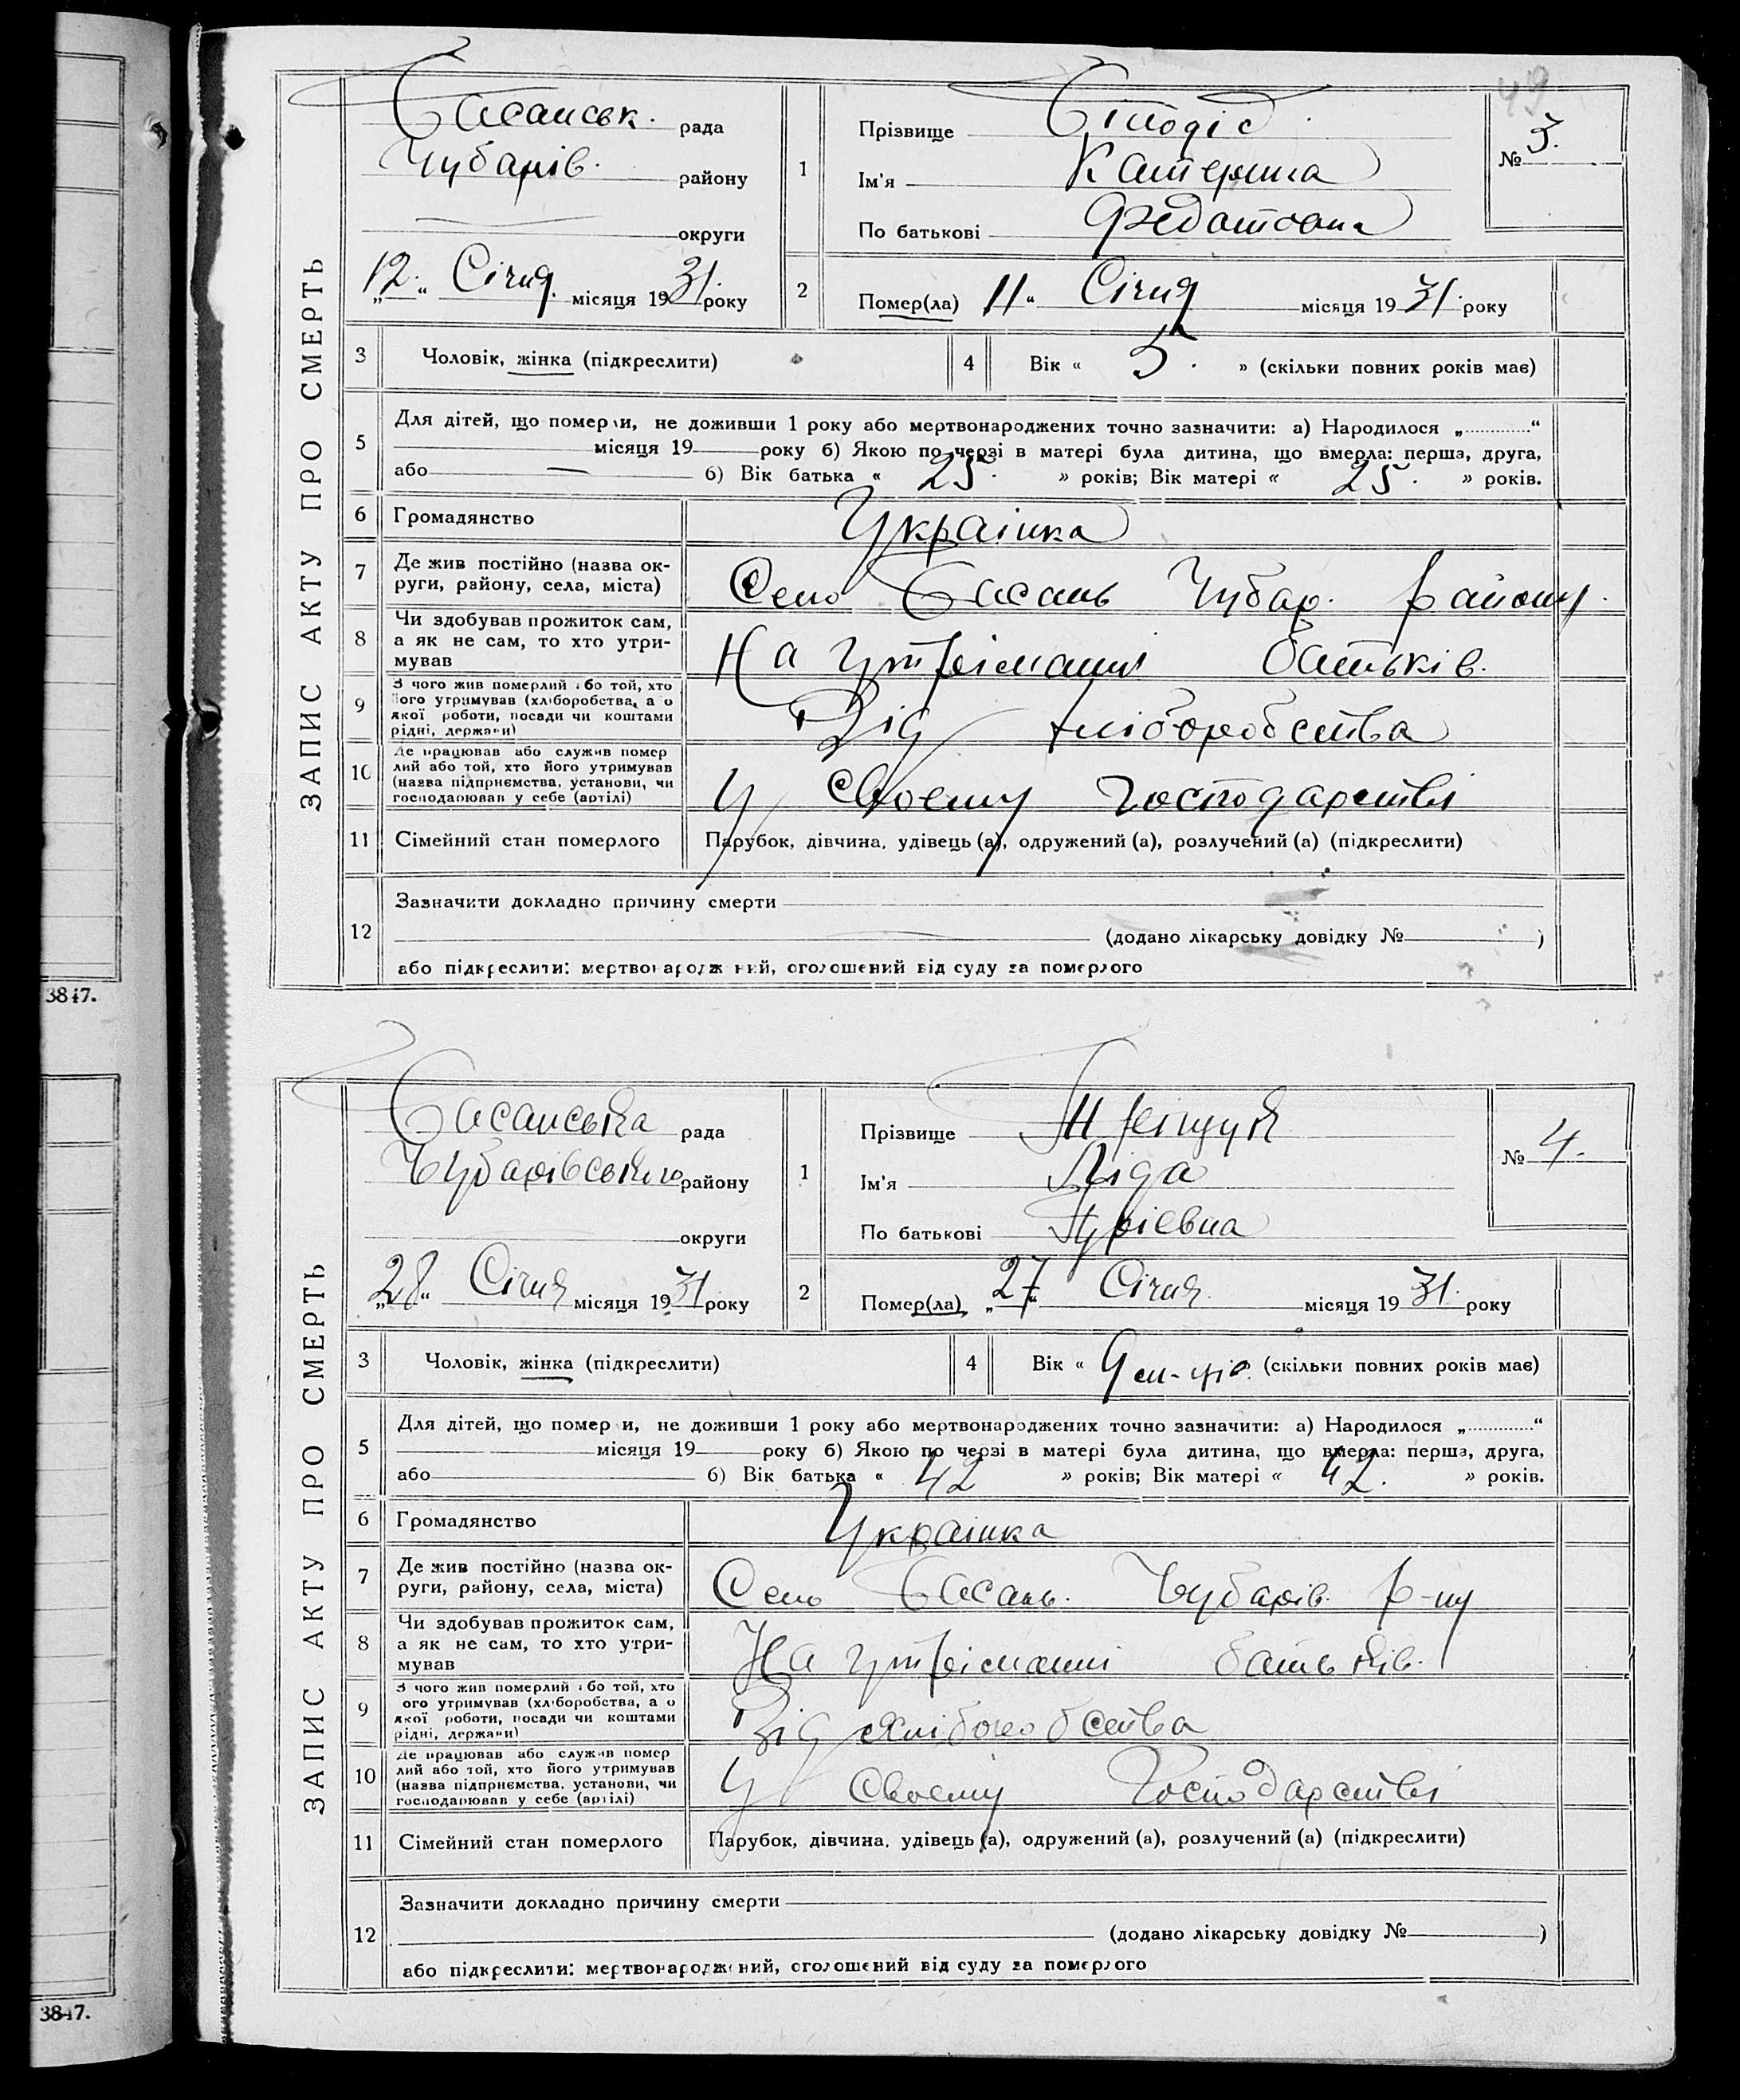 49
ЗАПИС АКТУ ПРО СМЕРТЬ
Басанськ. рада
Чубарів. району
округи
„12.“ Січня. місяця 1931. року
1
Прізвище Білодід
Ім'я Катерина
По батькові Федотовна
№ 3.
2
Помер(ла) 11 “ Січня місяця 1931. року
3 Чоловік, жінка (підкреслити)
4 Вік « 5. » (скільки повних років має)
5
Для дітей, що померли, не доживши 1 року або мертвонароджених точно зазначити: а) Народилося „............“
місяця 19 року б) Якою по черзі в матері була дитина, що вмерла: перша, друга,
або — 6) Вік батька « 25. » років; Вік матері « 25. » років.
6 Громадянство Українка
7 Де жив постійно (назва ок-
руги, району, села, міста) Село Басань Чубар. району.
8 Чи здобував прожиток сам,
а як не сам, то хто утри-
мував На утріманні батьків.
9 З чого жив померлий або той, хто
його утримував (хліборобства, а о
якої роботи, посади чи коштами
рідні, держави) Від хліборобства
10 Де працював або служив помер
лий або той, хто його утримував
(назва підприємства, установи, чи
господарював у себе (артілі) У своему господарстві
11 Сімейний стан померлого Парубок, дівчина, удівець (а), одружений (а), розлучений (а) (підкреслити)
12
Зазначити докладно причину смерти
(додано лікарську довідку № )
або підкреслити: мертвонароджений, оголошений від суду за померлого
3847.
ЗАПИС АКТУ ПРО СМЕРТЬ
Басанська рада
Чубарівського району
округи
„28“ Січня місяця 1931 року
1
Прізвище Тріщук
Ім'я Ліда
По батькові
№ 4.
2
Помер(ла) „27“ Січня. місяця 1931. року
3 Чоловік, жінка (підкреслити)
4 Вік « 9 (скільки повних років має)
5
Для дітей, що померли, не доживши 1 року або мертвонароджених точно зазначити: а) Народилося „............“
місяця 19 року б) Якою по черзі в матері була дитина, що вмерла: перша, друга,
або 6) Вік батька « 42 » років; Вік матері « 42. » років.
6 Громадянство Українка
7 Де жив постійно (назва ок-
руги, району, села, міста) Село Басань. Чубарів. р-ну
8 Чи здобував прожиток сам,
а як не сам, то хто утри-
мував На утріманні батьків.
9 З чого жив померлий або той, хто
ого утримував (хліборобства, а о
якої роботи, посади чи коштами
рідні, держави) Від хліборобства
10 Де працював або служив помер
лий або той, хто його утримував
(назва підприємства, установи, чи
господарював у себе (артілі) У своему господарстві
11 Сімейний стан померлого Парубок, дівчина, удівець (а), одружений (а), розлучений (а) (підкреслити)
12
Зазначити докладно причину смерти
(додано лікарську довідку № )
або підкреслити: мертвонароджений, оголошений від суду за померлого
3847.